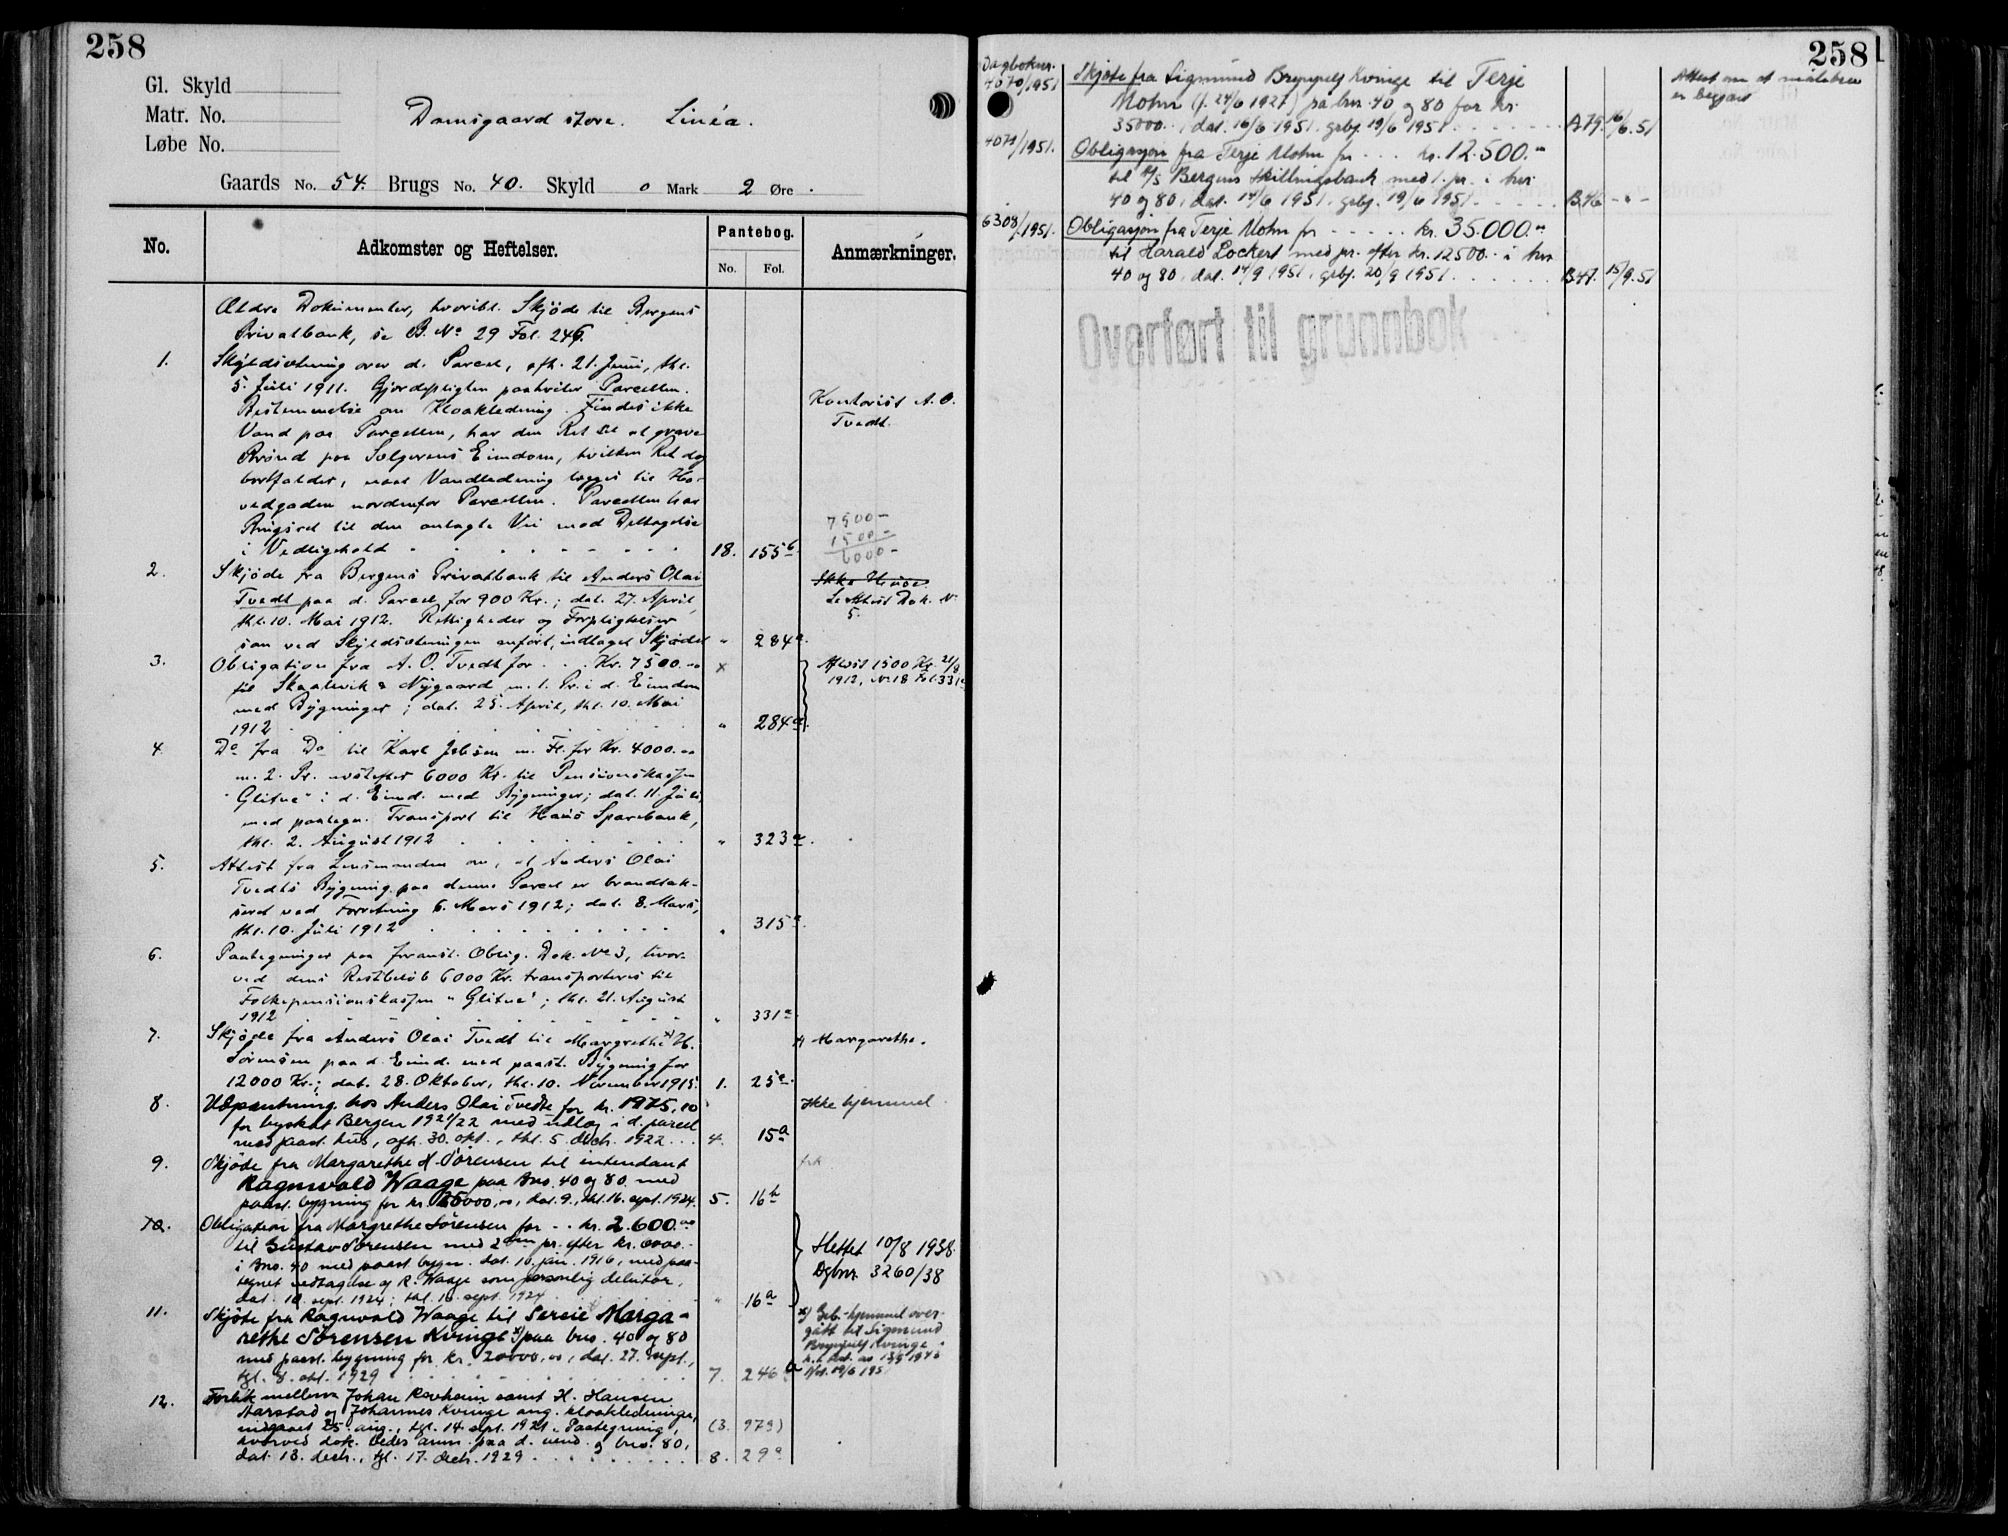 258
Gl. Skyld
Matr. No.
Løbe No.
Damsgaard store. Linéa.
Gaards No. 54. Brugs No. 40. Skyld 0 Mark 2 Øre.
No. Adkomster og Heftelser. Pantebog. No. Fol. Anmærkninger.
Ældre Dokumenter, hvoribl. Skjøde til Bergens
Privatbank, se B. No 29 Fol. 246.
1. Skyldsetning over d. Parcel, afh. 21. Juni, thl.
5. Juli 1911. Gjerdepligten paahviler Parcellen.
Bestemmelse om Kloakledning. Findes ikke
Kontorist A. O.
Tvedt.
Vand paa Parcellen, har den Ret til at grave
Brønd paa Sælgerens Eiendom, hvilken Ret dog
bortfalder, naar Vandledning lægges til Ho-
vedgaden nordenfor Parcellen. Parcellen har
Brugsret til den anlagte Vei mod Deltagelse
i Vedligehold 18. 155b
7500 –
1500 –
6000 –
2. Skjøde fra Bergens Privatbank til Anders Olai
Tvedt paa d. Parcel for 900 Kr.; dat. 27. April,
thl. 10. Mai 1912. Rettigheder og Forpligtelser
som ved Skyldsetningen anført, indtaget Skjødet " 284a.
Ikke Huse
Se Attest Dok. No
5.
3. Obligation fra A. O. Tvedt for . . . Kr. 7500.00 x
til Skaalevik & Nygaard m. 1. Pr. i d. Eiendom
med Bygninger; dat. 25. April, thl. 10. Mai
1912 " 284a.
Afløst 1500 Kr. 21/8
1912, No 18 Fol. 331a
4. Do fra Do til Karl Jebsen m. Fl. for Kr. 4000.00
m. 2. Pr. næstefter 6000 Kr. til Pensionskassen
"Glitne" i d. Eiend. med Bygninger; dat. 11. Juli,
med paategn. Transport til Haus Sparebank,
thl. 2. August 1912 " 323a.
5. Attest fra Lensmanden om, at Anders Olai
Tvedts Bygning paa denne Parcel er brandtak-
seret ved Forretning 6. Mars 1912; dat. 8. Mars,
thl. 10. Juli 1912 " 315a
6. Paategninger paa foranst. Oblig. Dok. No 3, hvor-
ved dens Restbeløb 6000 Kr. transporteres til
Folkepensionskassen "Glitne"; thl. 21. August
1912 " 331a.
7. Skjøde fra Anders Olai Tvedt til Margrethe x) H.
Sørensen paa d. Eiend. med paast. Bygning for
12000 Kr.; dat. 28. Oktober, thl. 10. November 1915. 1. 25a.
x) Margarethe.
8. Udpantning hos Anders Olai Tvedt for kr. 1975,10
for byskat Bergen 1921/22 med udlæg i d. parcel
med paast. hus, afh. 30. okt., thl. 5. decb. 1922 . . . 4. 15a
Ikke hjemmel.
9. Skjøde fra Margarethe H. Sørensen til intendant
Ragnvald Waage paa Bno. 40 og 80 med
paast. bygning for kr. 25000,00, dat. 9., thl. 16. sept. 1924. 5. 16b
frk
10. Obligation fra Margrethe Sørensen for . . kr. 2.600.00
til Gustav Sørensen med 2den pr. efter kr. 6000.-
i Bno. 40 med paast. bygn. dat. 10. jan. 1916, med paa-
tegnet vedtagelse af R. Waage som personlig debitor,
dat. 10. sept. 1924; thl. 16. sept. 1924 " 16a
Slettet 10/8 1938.
Dgbnr. 3260/38
11. Skjøte fra Ragnvald Waage til Serine Marga-
rethe Sørensen Kvinge x) paa bno. 40 og 80
med paast. bygning for kr. 20000,00, dat. 27. sept.,
tgl. 8. okt. 1929 7. 246a
x) Grb.-hjemmel over-
gått til Sigmund
Brynjulf Kvinge
Not. 19/6 1951
12. Forlik mellem Johan Ravheim samt H. Hansen
Aarstad og Johannes Kvinge ang. kloakledninger,
indgaaet 25. aug., tgl. 14. sept. 1921. Paategning, (3. 979)
hvorved dok. bedes anm. paa d. eiend. og bno. 80,
dat. 13. decb., tgl. 17. decb. 1929 8. 29a
258
Dagboknr.
4070/1951 Skjøte fra Sigmund Brynjulf Kvinge til Terje
Mohn (f. 24/6 1927) på bnr. 40 og 80 for kr.
35000.-, dat. 16/6 1951, grbf. 19/6 1951 A79. 16/6.51
Attest om at målebrev
er begjært
4071/1951. Obligasjon fra Terje Mohn for . . . kr. 12.500.00
til A/S Bergens Skillingsbank med 1. pr. i bnr.
40 og 80, dat. 14/6 1951, grbf. 19/6 1951 B.46 - " -
6308/1951. Obligasjon fra Terje Mohn for . . . kr. 35.000.00
til Harald Lockert med pr. efter kr. 12500.- i bnr.
40 og 80, dat. 14/9 1951, grbf. 20/9 1951 B.47. 15/9.51
Overført til grunnbok